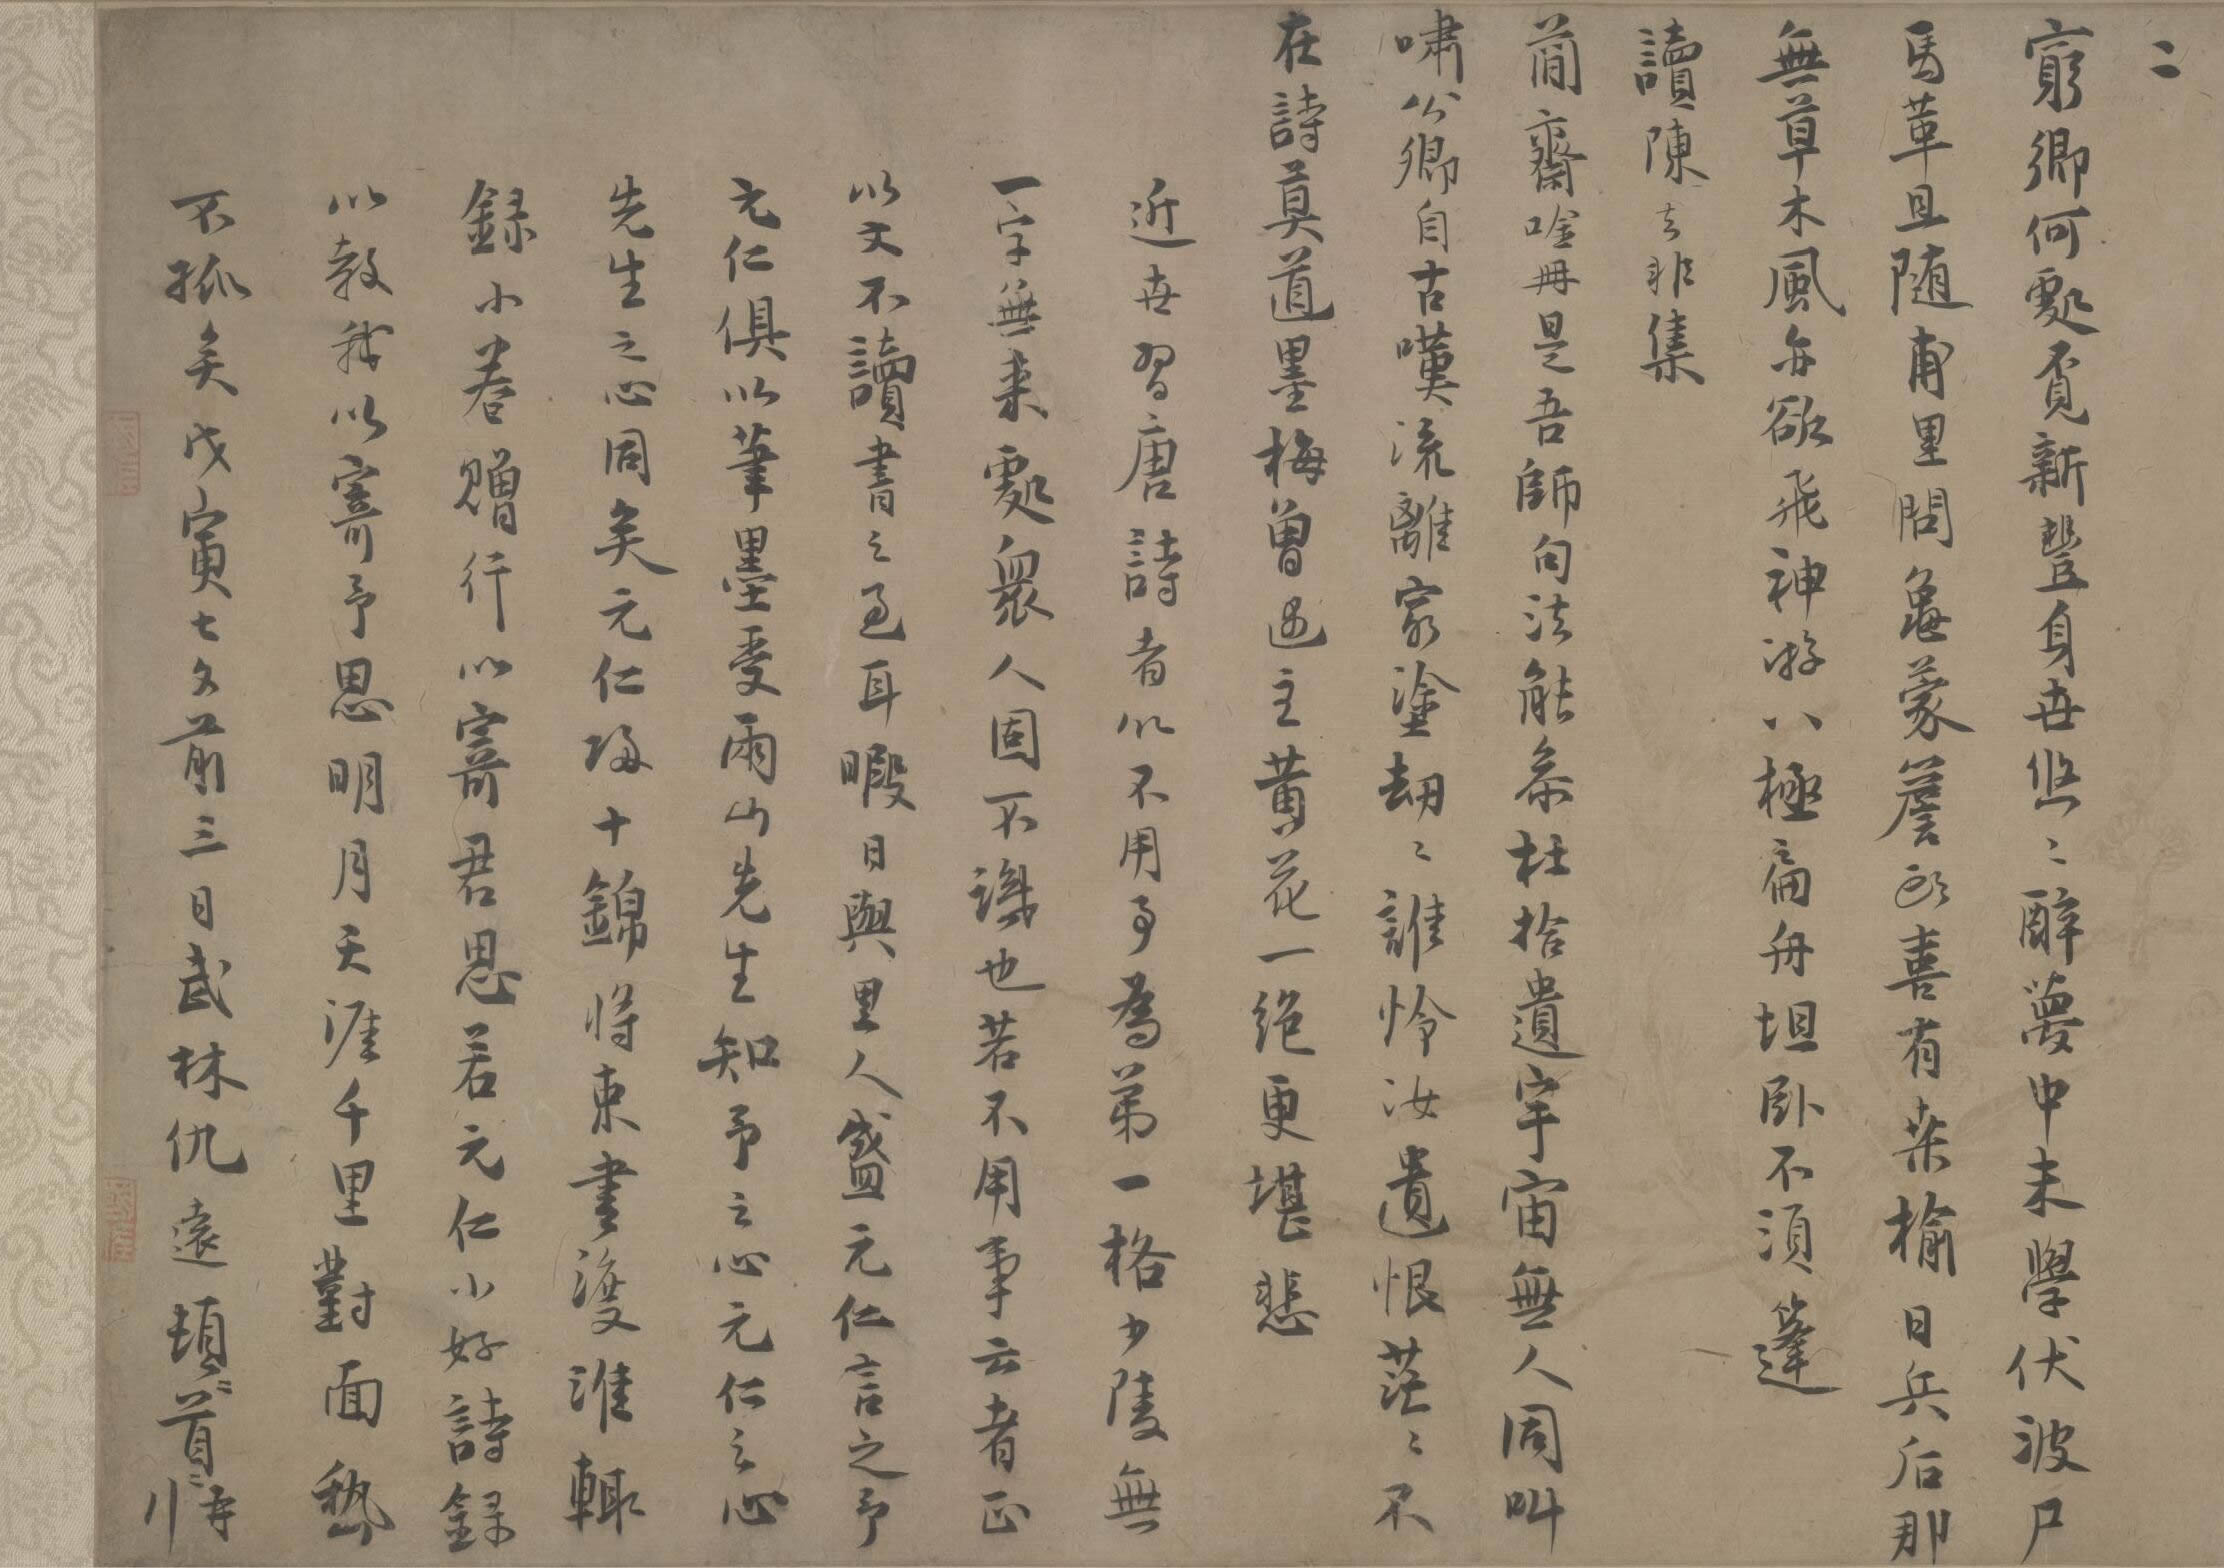 二
窮鄉何處覓新豐身世悠〻醉夢中未學伏波尸
馬革且随甫里問龜蒙舊交喜有桑榆日兵后那
無草木風亦欲飛神游八極扁舟坦卧不須篷
讀陳去非集
簡齋吟冊是吾師句法能參杜拾遺宇宙無人同叫
嘯公卿自古嘆流離窮塗劫〻誰怜汝遺恨茫〻不
在詩莫道墨梅曾遇主黄花一絶更堪悲
近世習唐詩者以不用事為第一格少陵無
一字無来處衆人固不識也若不用事云者正
以文不讀書之過耳暇日與里人盛元仁言之予
元仁俱以筆墨受雨山先生知予之心元仁之心
先生之心同矣元仁歸十錦將束書渡淮輙
録小卷贈行以寄君思若元仁小好詩録
以教我以寄予思明月天涯千里對面熱
不孤矣戊寅七夕前三日武林仇遠頓〻首〻